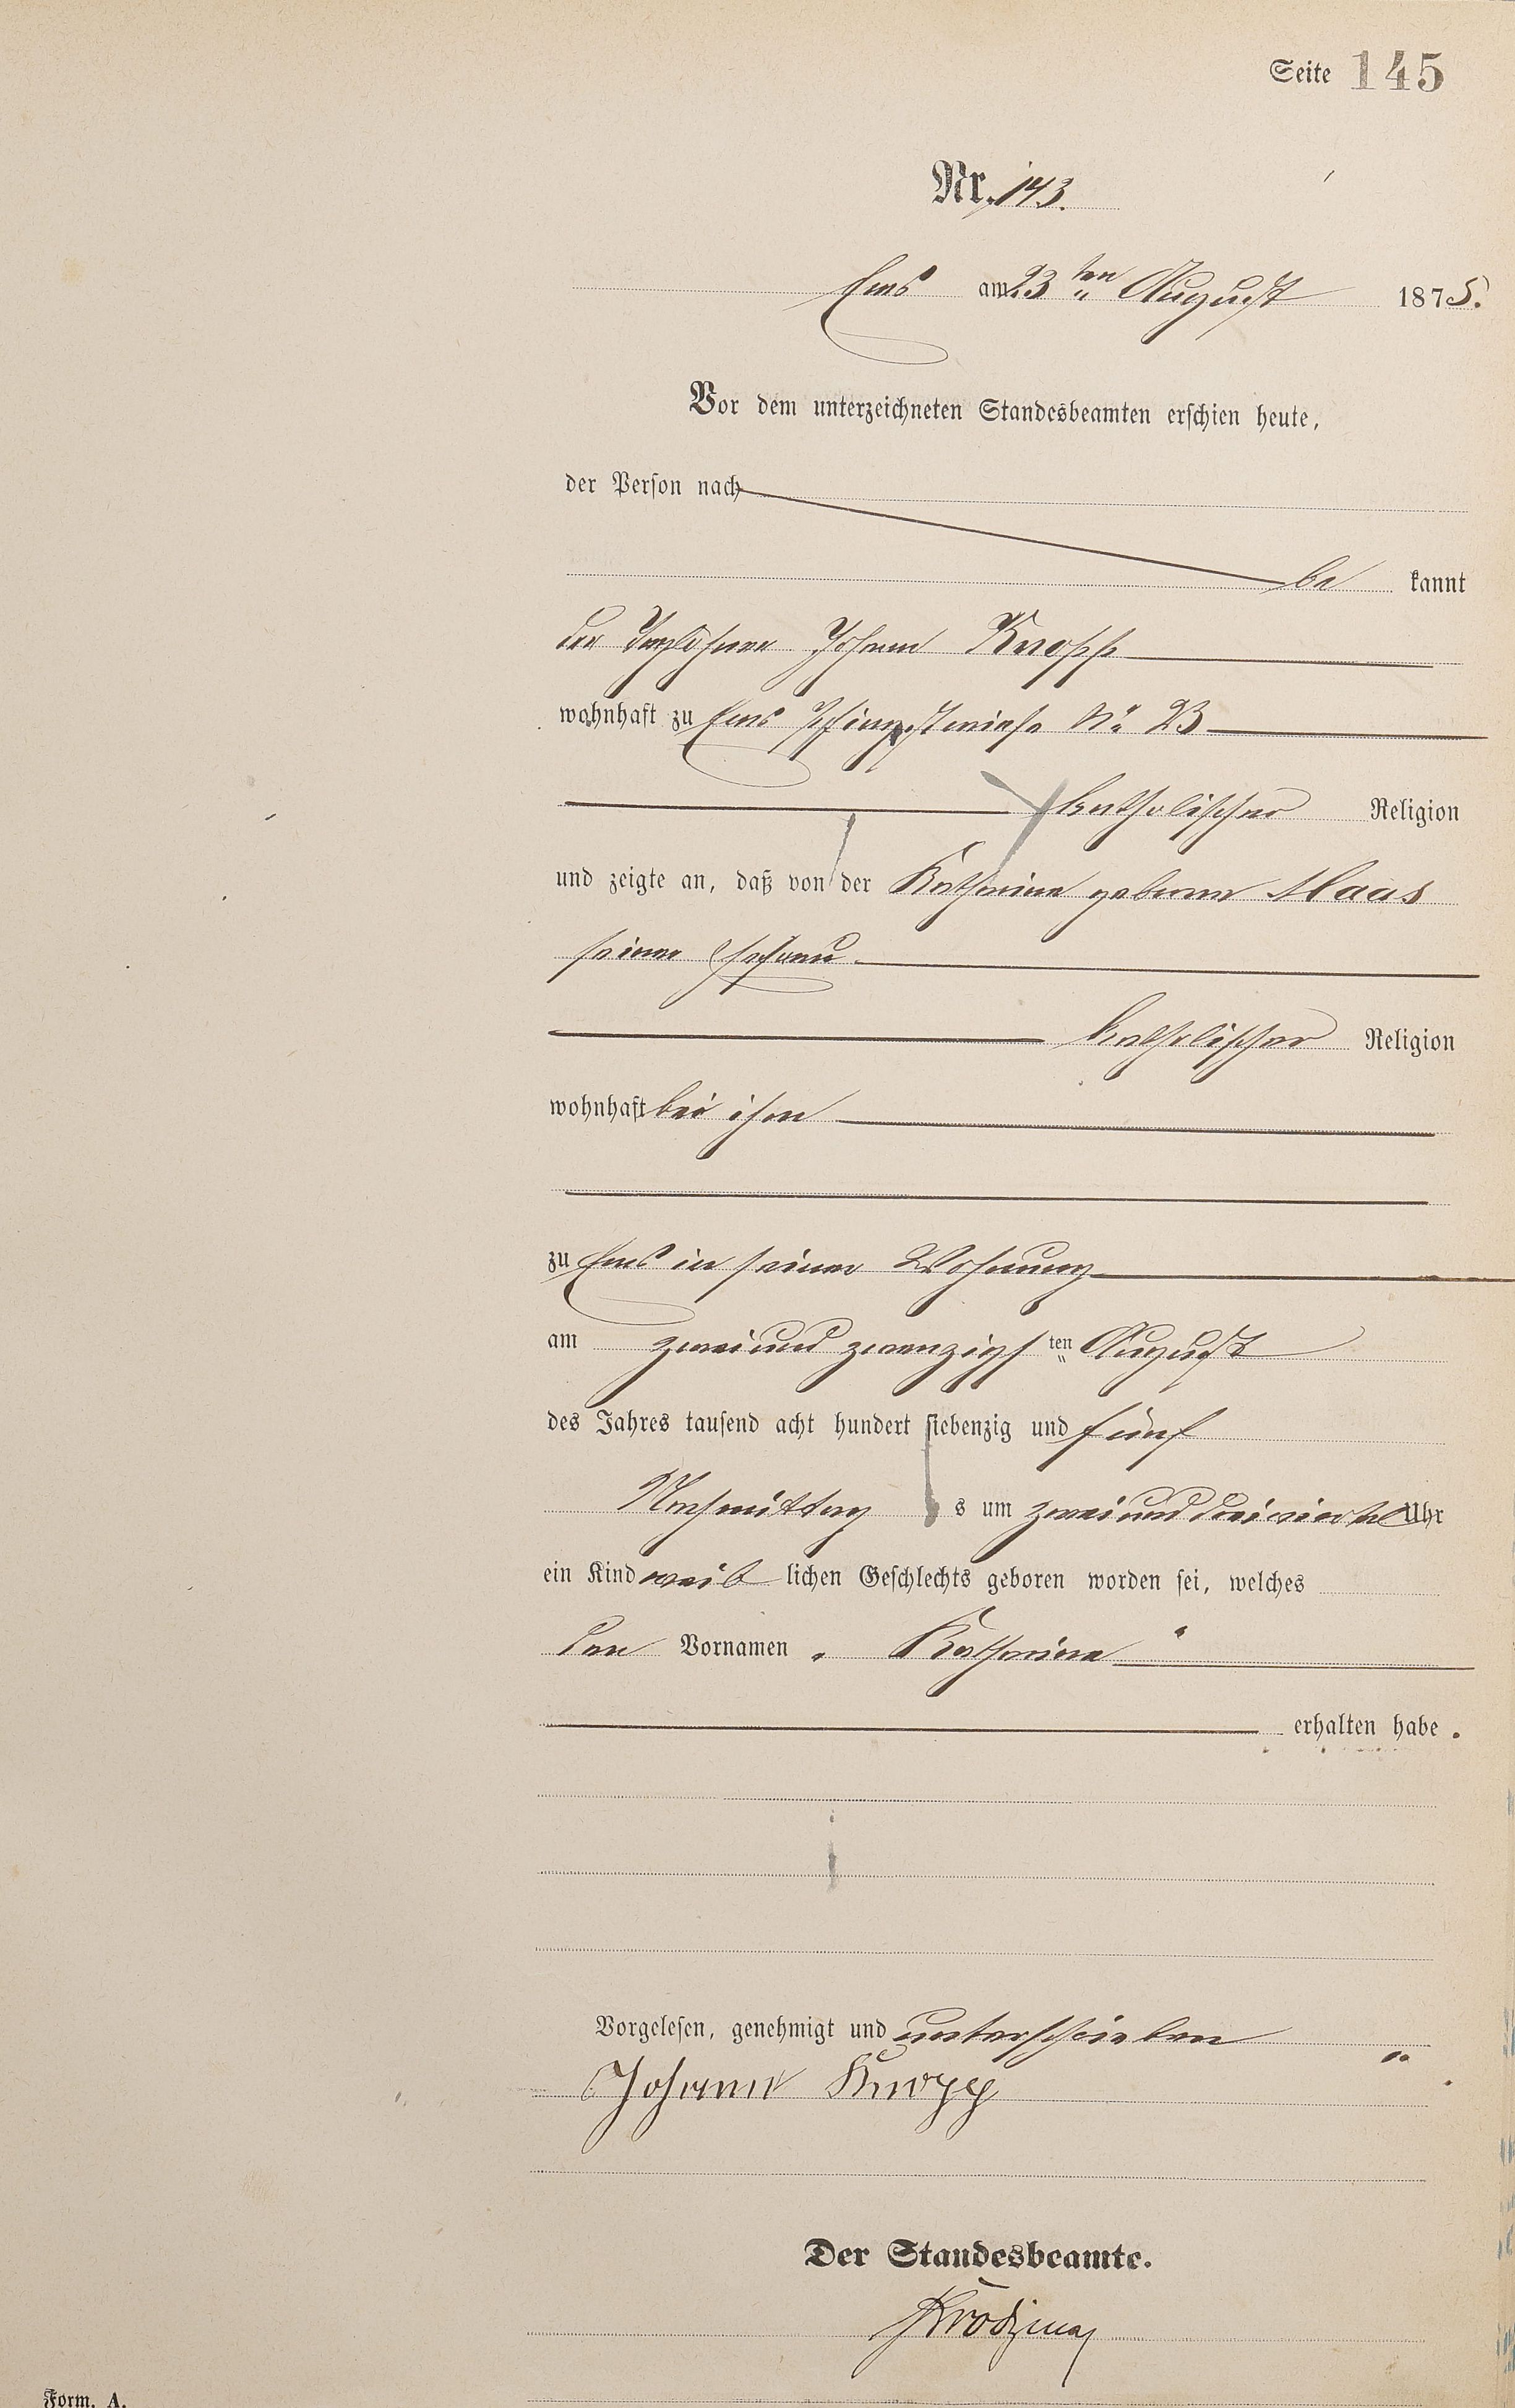 Seite 145
Nr. 143.
Ems am 23ten August 1875.
Vor dem unterzeichneten Standesbeamten erschien heute,
der Person nach
be kannt
der Taglöhner Johann Knopp
wohnhaft zu Ems Pfingstwiese No 23
katholischer Religion
und zeigte an, daß von der Katharina geborene Maas
seiner Ehefrau
katholischer Religion
wohnhaft bei ihm
zu Ems in seiner Wohnung
am zweiund zwanzigs ten August
des Jahres tausend acht hundert siebenzig und fünf
Nachmittag s um zweiund dreiviertel Uhr
ein Kind weib lichen Geschlechts geboren worden sei, welches
den Vornamen „ Katharina "
erhalten habe.
Vorgelesen, genehmigt und unterschrieben
Johann Knopp
Der Standesbeamte.
Form. A.